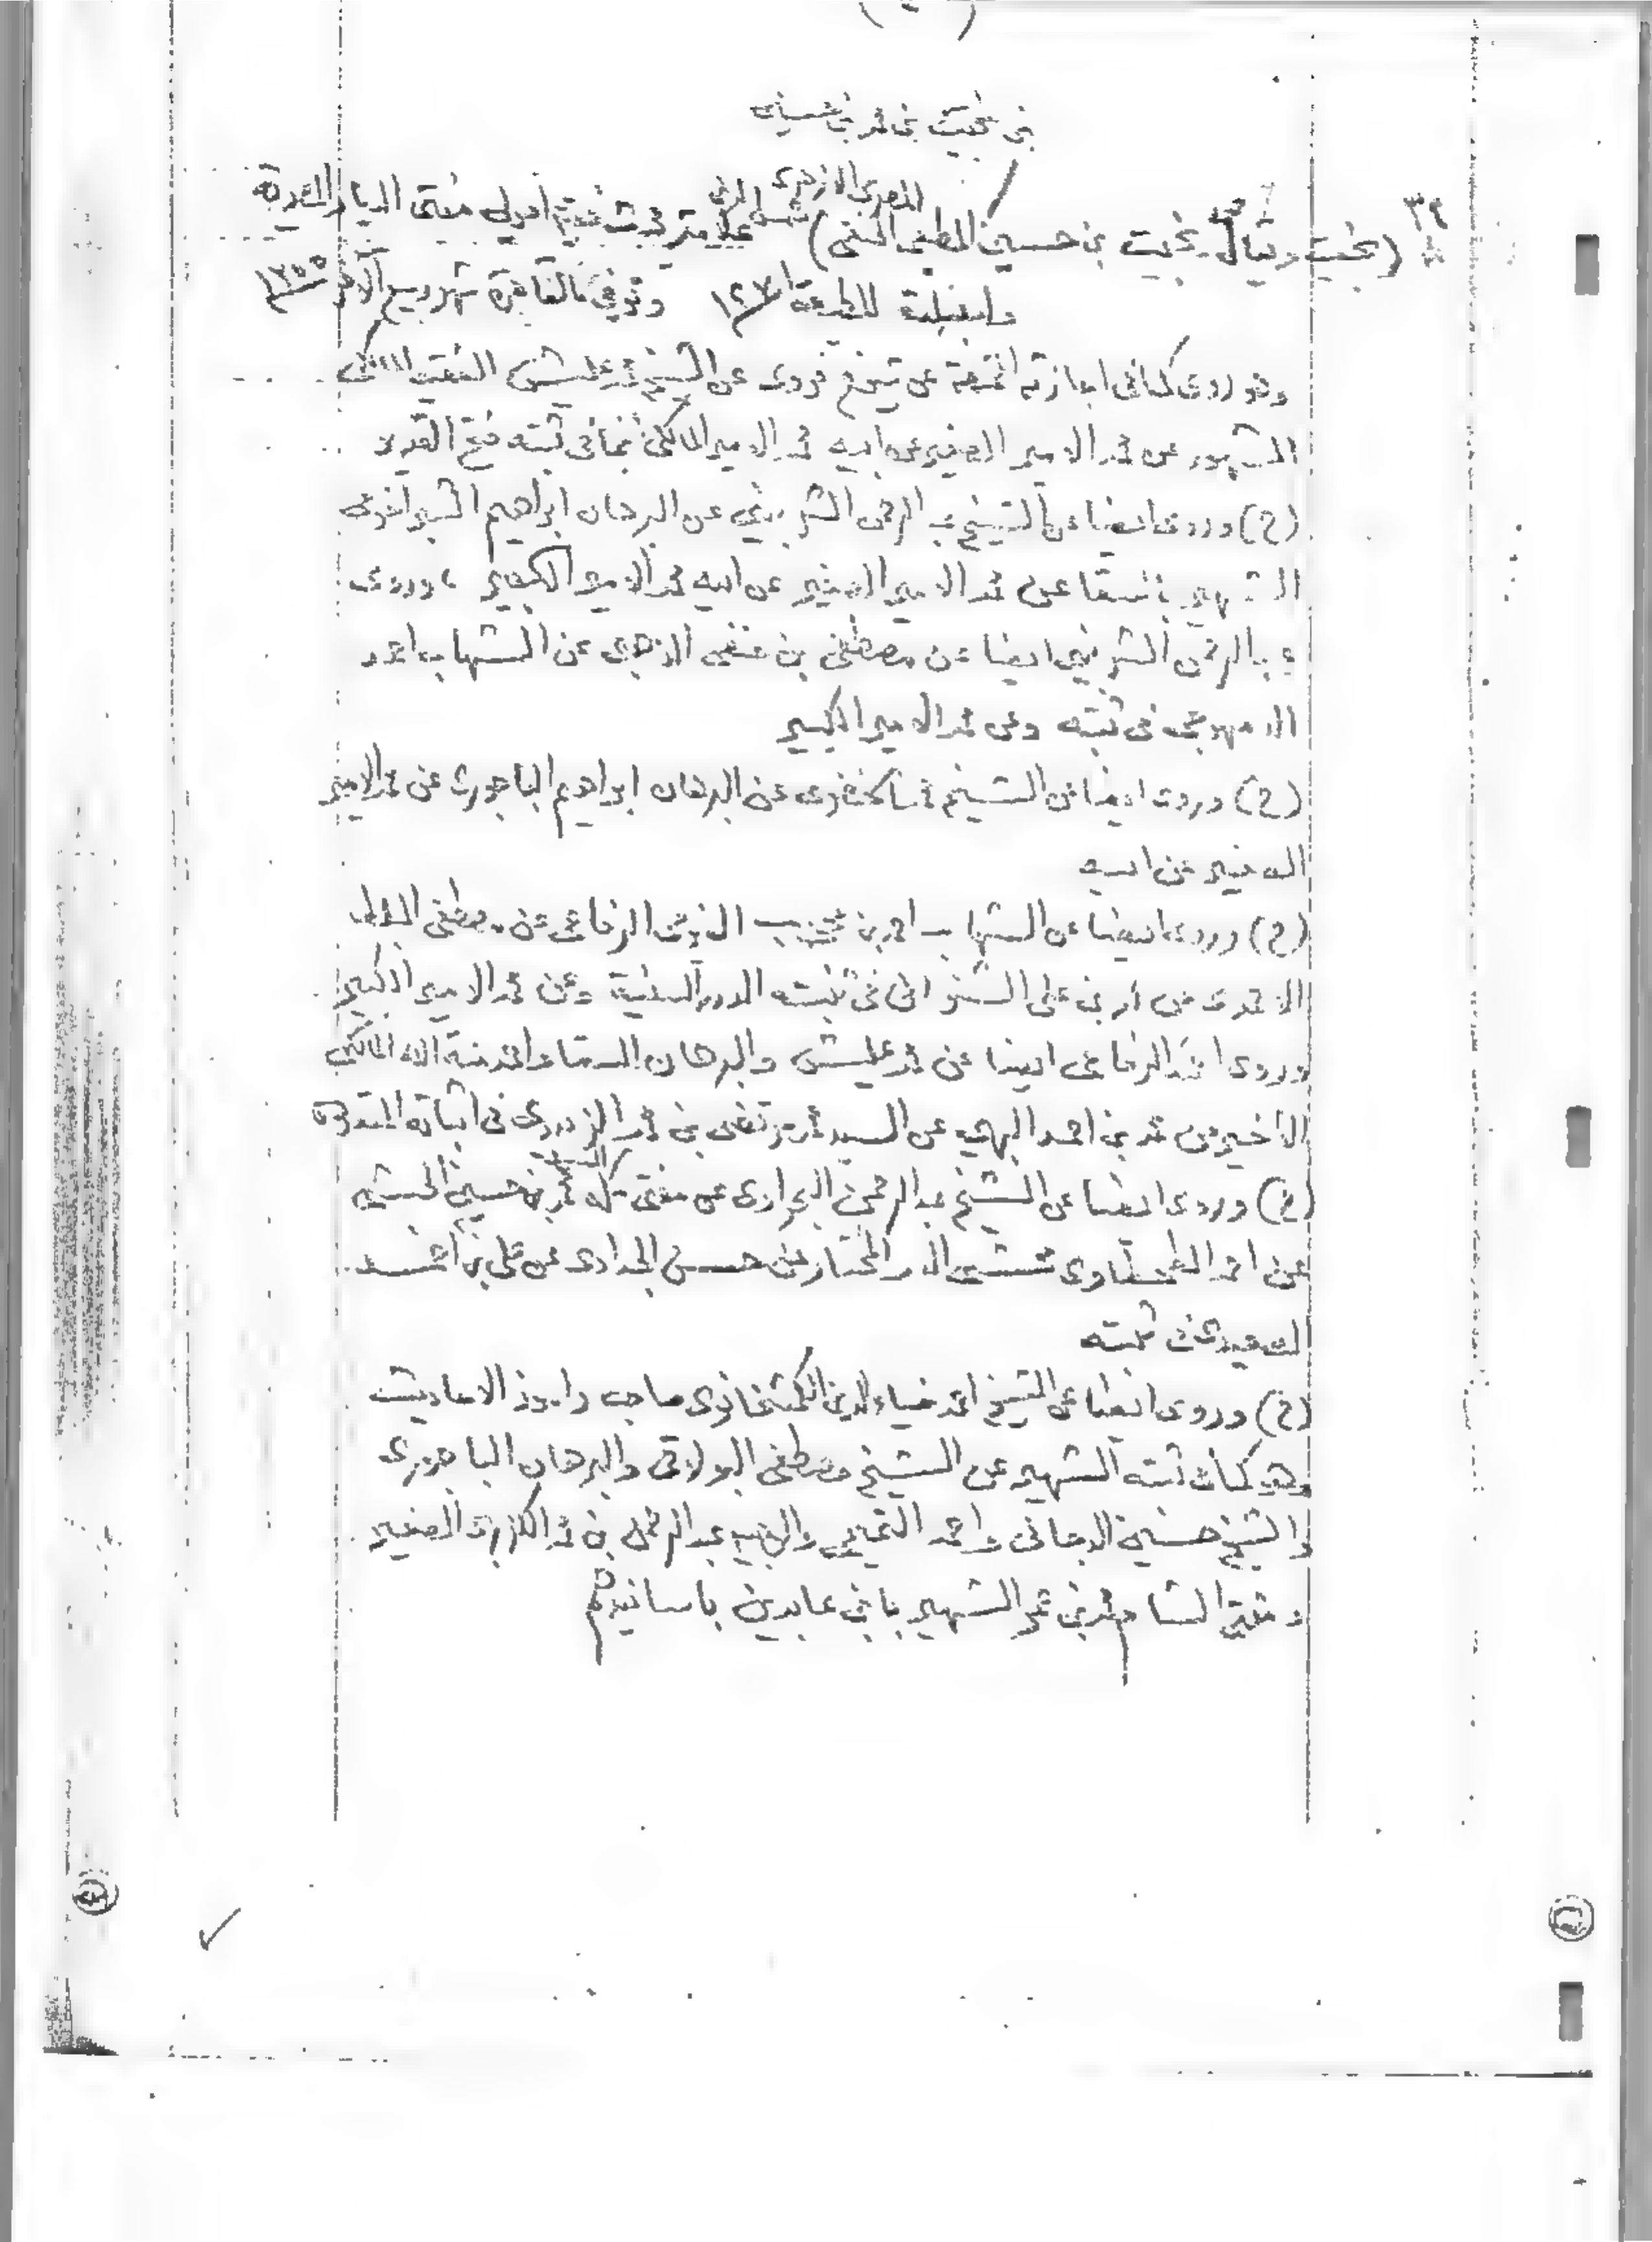 بن بخيت بن محمد بن حسين
المصري الازهري
٣٢ (بخيت ويقال محمد بخيت بن حسين المطيعي الحنفي) علامة محدث فقيه اصولي مفتى الديار المصرية
ولد ببلدة المطيعة ١٢٧١ وتوفي بالقاهرة شهر ربيع الآخر ١٣٥٥
وهو روى كما في اجازته الممتعة عن شيوخ فروى عن الشيخ محمد عليش الفقيه المالكى
المشهور عن محمد الامير الصغير عن ابيه محمد الامير المالكي بما في ثبته فتح القدير
(ح) وروى ايضا عن الشيخ عبد الرحمن الشربيني عن البرهان ابراهيم
الشهير بالسقا عن محمد الامير الصغير عن ابيه محمد الامير الكبير ، وروى
عبد الرحمن الشربيني ايضا عن مصطفى بن حنفى الذهبى عن الشهاب احمد
الدمهوجى فى ثبته وعن محمد الامير الكبير
(ح) وروى ايضا عن الشيخ عن البرهان ابراهيم الباجوري عن محمد الامير
الصغير عن ابيه
(ح) وروى ايضا عن الشهاب احمد بن محجوب الفيومى الرفاعى عن مصطفى
الاحمدى عن محمد بن على الشنوانى فى ثبته الدرر السنية وعن محمد الامير الكبير
وروى احمد الرفاعى ايضا عن محمد عليش والبرهان السقا واحمد منة الله المالكي
الاخير عن محمد بن احمد البهي عن السيد محمد مرتضى بن محمد الزبيدى فى اثباته المتعددة
(ح) وروى ايضا عن الشيخ عبد الرحمن البحراوى عن مفتى مكة محمد بن حسين الكتبى
عن احمد الطحطاوى محشى الدر المختار عن حسن الجداوى عن على بن احمد
الصعيدى فى ثبته
(ح) وروى ايضا عن الشيخ احمد ضياء الدين الكمشخانوى صاحب راموز الاحاديث
وهو كما فى ثبته الشهير عن الشيخ مصطفى البولاقى والبرهان الباجورى
والشيخ حسين الدجانى واحمد التميمى والوجيه عبد الرحمن بن محمد الكزبرى الصغير
وفقيه الشام محمد بن عمر الشهير بابن عابدين باسانيدهم